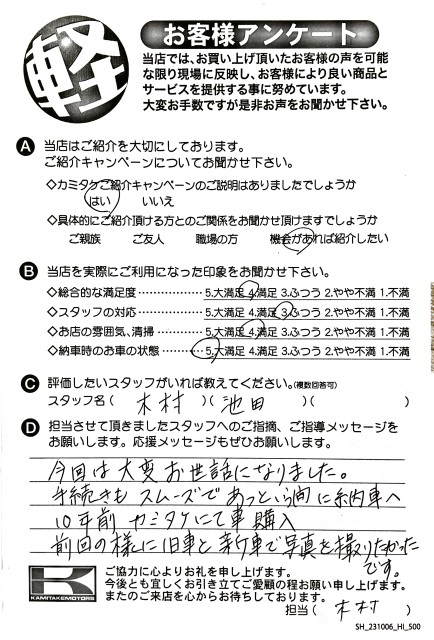 軽
お客様アンケート
当店では、お買い上げ頂いたお客様の声を可能
な限り現場に反映し、お客様により良い商品と
サービスを提供する事に努めています。
大変お手数ですが是非お声をお聞かせ下さい。
A 当店はご紹介を大切にしております。
ご紹介キャンペーンについてお聞かせ下さい。
◇カミタケご紹介キャンペーンのご説明はありましたでしょうか
はい いいえ
◇具体的にご紹介頂ける方とのご関係をお聞かせ頂けますでしょうか
ご親族 ご友人 職場の方 機会があれば紹介したい
B 当店を実際にご利用になった印象をお聞かせ下さい。
◇総合的な満足度 ……………… 5.大満足 4.満足 3.ふつう 2.やや不満 1.不満
◇スタッフの対応 ……………… 5.大満足 4.満足 3.ふつう 2.やや不満 1.不満
◇お店の雰囲気、清掃 ………… 5.大満足 4.満足 3.ふつう 2.やや不満 1.不満
◇納車時のお車の状態 ………… 5.大満足 4.満足 3.ふつう 2.やや不満 1.不満
C 評価したいスタッフがいれば教えてください。(複数回答可)
スタッフ名( 木村 )( 池田 )( )
D 担当させて頂きましたスタッフへのご指摘、ご指導メッセージを
お願いします。応援メッセージもぜひお願いします。
今回は大変お世話になりました。
手続きもスムーズであっという間に納車へ
10年前カミタケにて車購入
前回の様に旧車と新車で写真を撮りたかった
です。
K
KAMITAKEMOTORS
ご協力に心よりお礼を申し上げます。
今後とも宜しくお引き立てご愛顧の程お願い申し上げます。
またのご来店を心からお待ちしております。
担当( 木村 )
SH_231006_HI_500